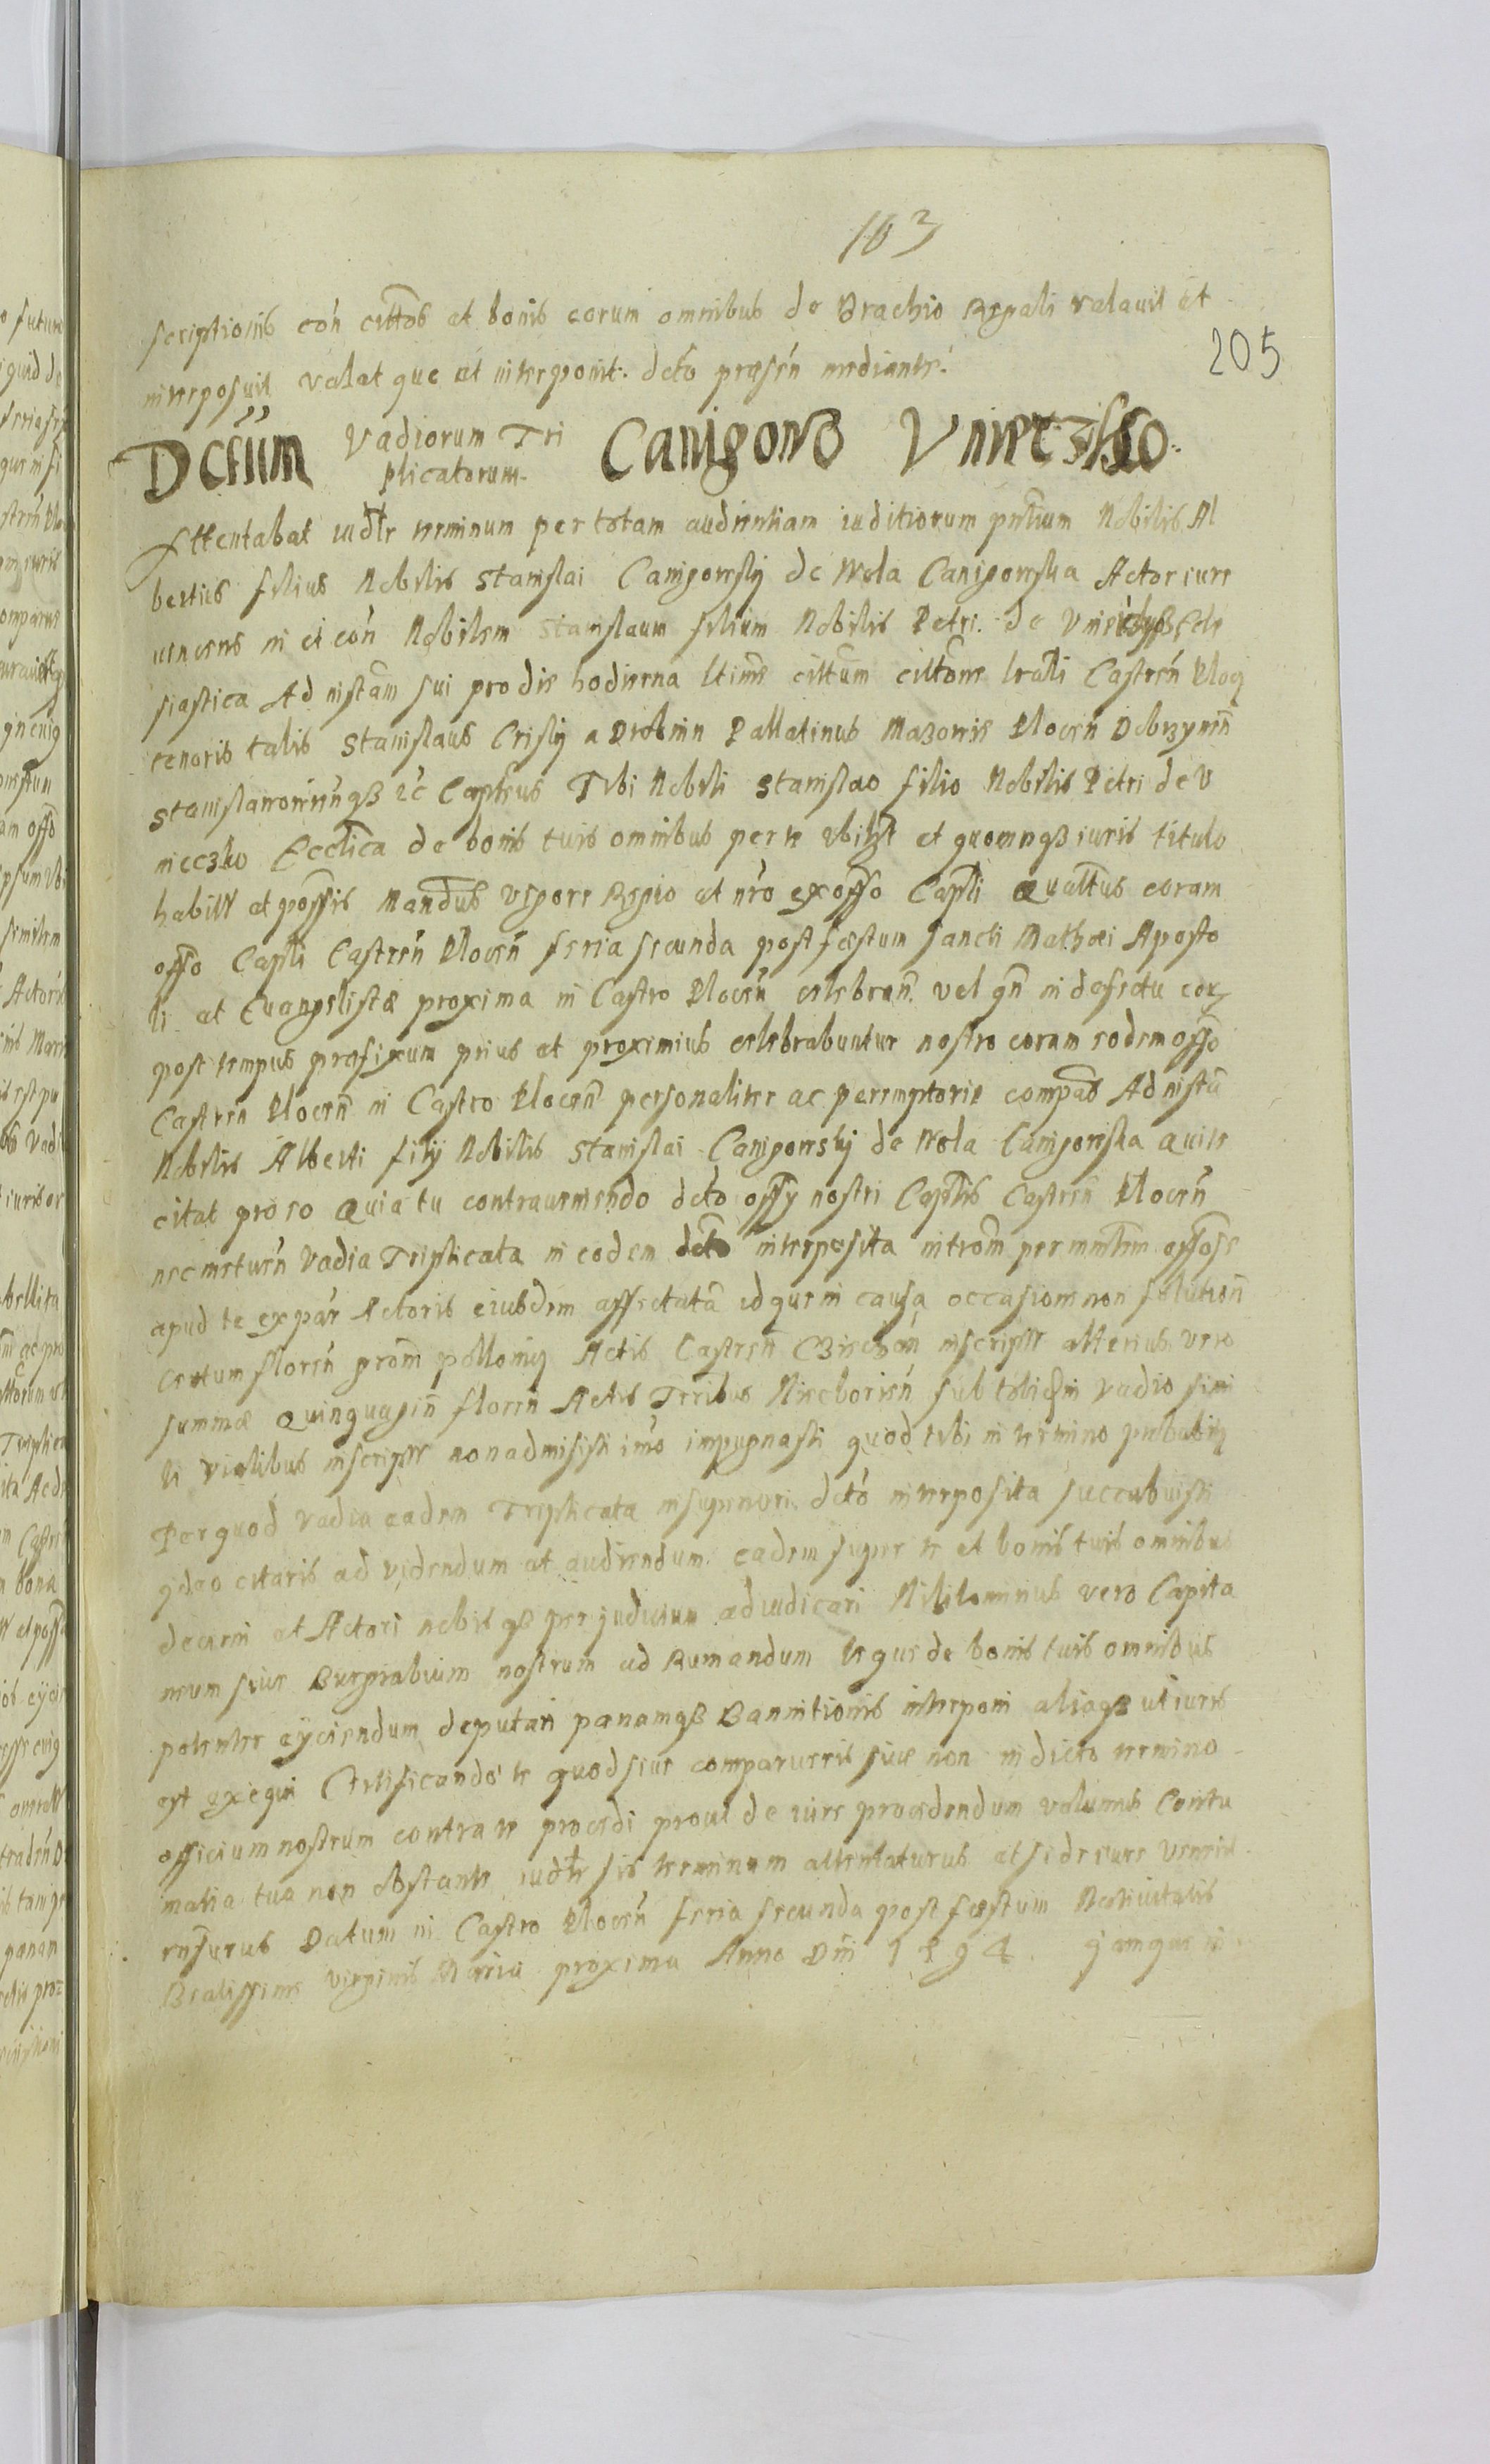 103
205
scriptionis con citatos at bonis eorum omnibus de Brachio Regali valavit at
interposuit valat que at interponit. dcto præsen mediante.
Dctum Vadiorum Tri
plicatorum.
Canigows Vnieczsko
Attentabat iudtr terminum per totam audientiam iuditiorum pntium Nobilis Al
bertus filius Nobilis Stanislai Canigowsky de Wola Canigowska Actor iure
uincens in et con Nobilem Stanislaum filium Nobilis Petri de Ecle
siastica Ad nistam sui pro die hodierna ltime cittum cittone lralli Castren Plocz
tenoris talis Stanislaus Crisky a Drobnin Pallatinus Mazowie Plocen Dobrzynen
Stanislawowienqz zc Captneus Tibi Nobili Stanislao filio Nobilis Petri de V
nieczko Ecclica de bonis tuis omnibus per te vbilzt et quomoqz iuris titulo
habitt at possis Mandus vigore Regio at nro ex offo Capli Quattus coram
offo Capli Castren Plocen feria secunda post festum sancti Mathæi Aposto
li at Euangelistæ proxima in Castro Plocen celebran. vel qn in defectu eorz
post tempus præfixum prius at proximius celebrabuntur nostro coram eodem offo
Castren Plocen in Castro Plocen personaliter ac peremptorie compas Ad nista
Nobilis Alberti filij Nobilis Stanislai Canigowsky de Wola Canigowska Qui te
citat pro eo Quia tu contraueniendo dcto offy nostri Captlis Castren Plocen
nec metuen Vadia Triplicata in eodem dcto interposita introm per mnstrm offose
apud te ex par Actoris eiusdem affectata idque in causa occasione non solution
centum floren prom pollonicz Actis Castren Ciechan inscriptt alterius vero
summæ Quinquagin floren Actis Terribus Nieborien sub tobiqm vadio simi
li violibus inscriptt non admisisti imo impugnasti quod tibi in termino probabitz
Per quod vadia eadem Triplicata in superiori dcto interposita succubuisti
qdeo citaris ad videndum at audiendum eadem super te et bonis tuis omnibus
decerni at Actori nobisqz per judicium adiudicari Nihilominus vero Capita
neum siue Burgrabium nostrum ad Rumandum teque de bonis tuis omnibus
potenter eyciendum deputari panamqz Bannitionis interponi aliaqz ut iuris
est exequi Certificando te quod siue comparueris siue non in dicto termino
officium nostrum contra te procedi prout de iure procedendum volumus Contu
matia tua non obstante iudtr sis terminum attentaturus at side iure venire
ensurus Datum in Castro Plocen feria secunda post festum Natiuitatis
Beatissime virginis Mariæ proxima Anno Dni 1594. jamque in